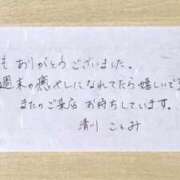 も ありがとうございました。
週末の癒やしになれてたら嬉しいで
またのご来店 お待ちしています。
清川 ことみ